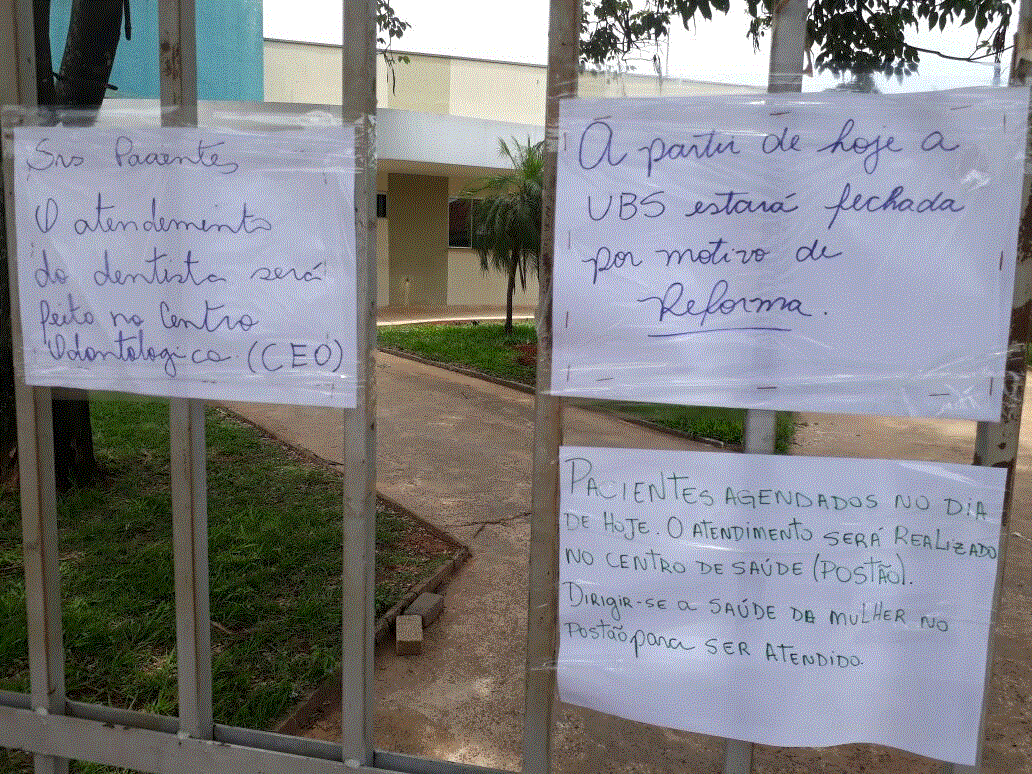 Srs Pacientes
O atendemento
do dentista será
feito no Centro
Odontologico. (CEO)
À partir de hoje a
UBS estará fechada
por motivo de
Reforma.
PACIENTES AGENDADOS NO DIA
DE HOJE. O ATENDIMENTO SERÁ REALIZADO
NO CENTRO DE SAÚDE (POSTÃO).
DIRIGIR-SE A SAÚDE DA MULHER NO
POSTÃO para SER ATENDIDO.